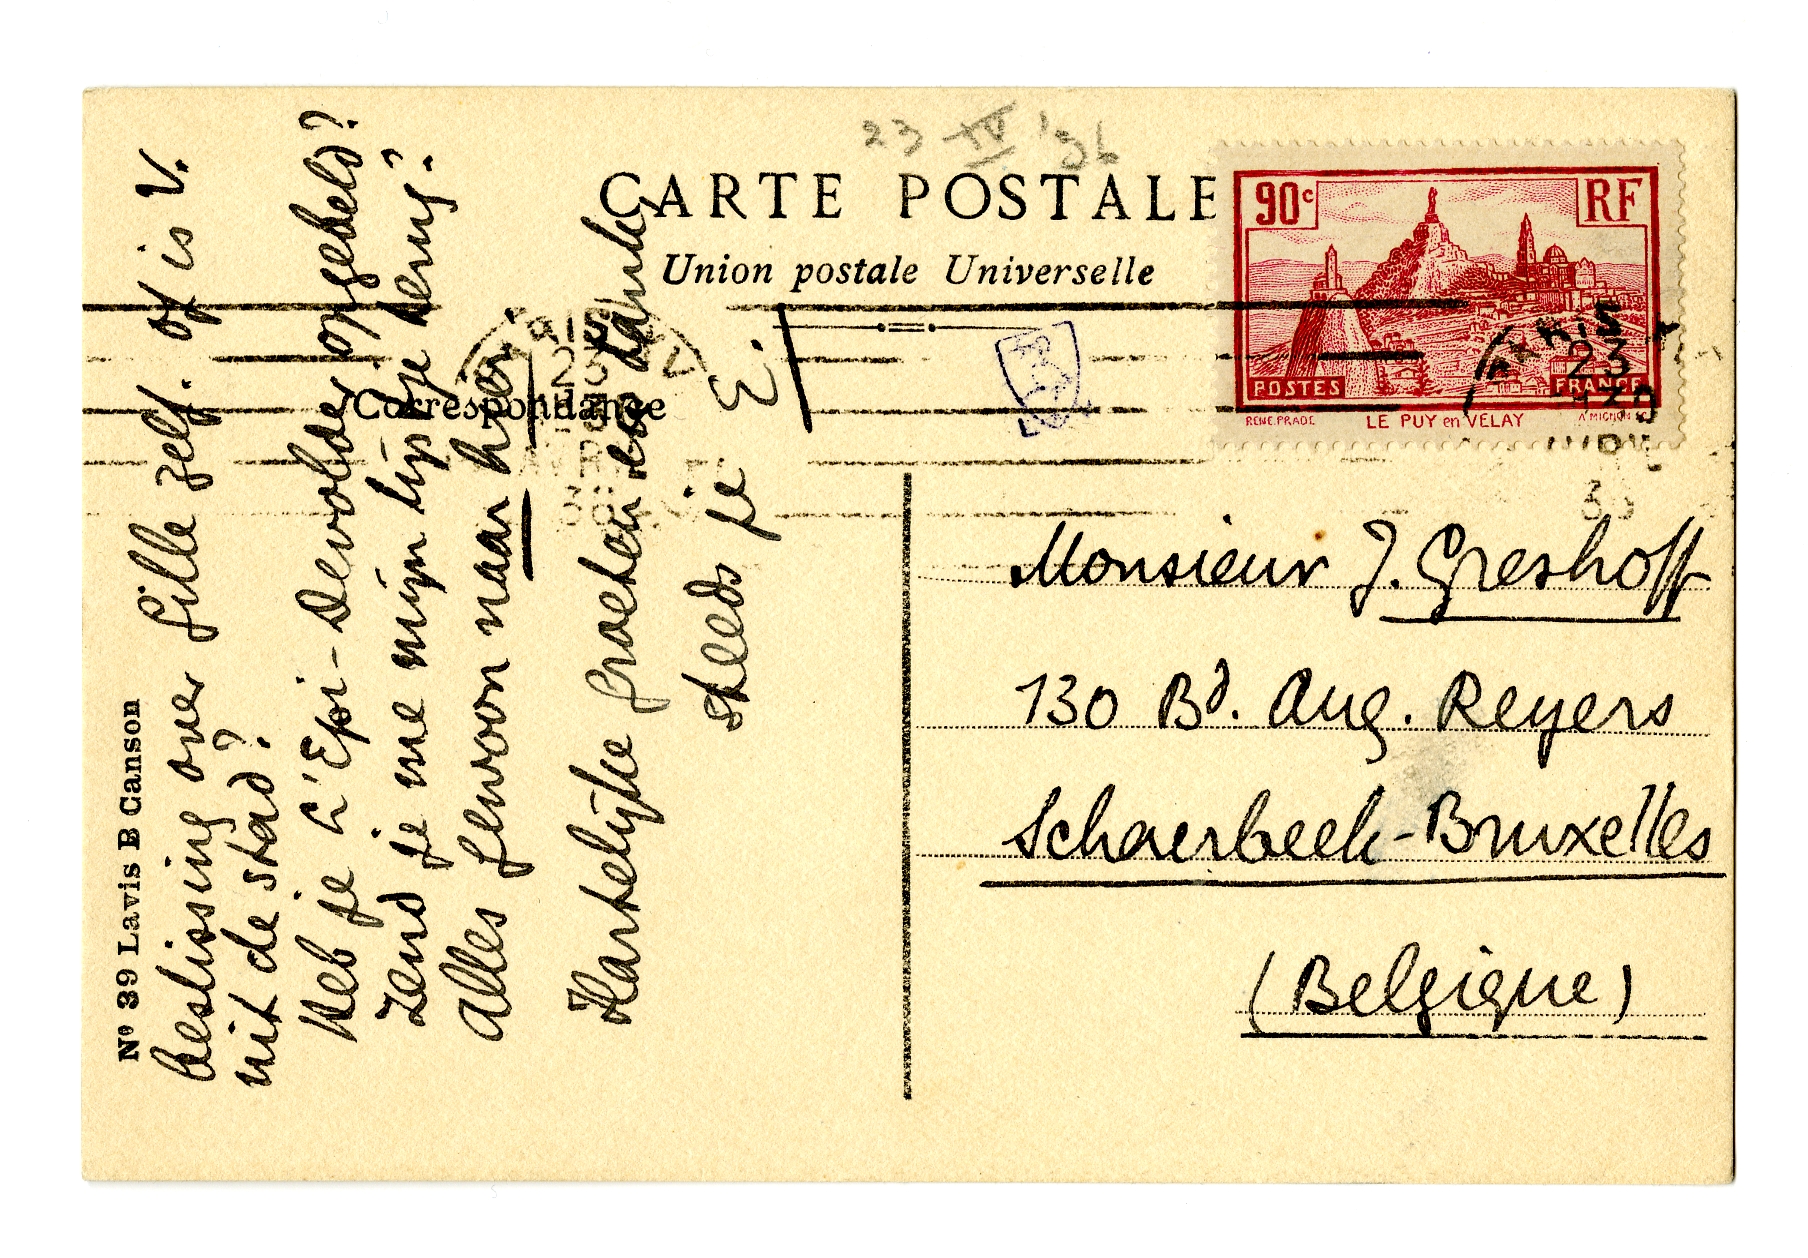 23 IV '36
CARTE POSTALE
Union postale Universelle
Correspondance
Nº 39 Lavis B Canson
90c
RF
POSTES
FRANCE
RENE.PRADE
LE PUY en VELAY
A MIGNON SC
PARIS
23
beslissing over Lille zelf. Of is V.
uit de stad?
Heb je L'Epi-Devolder opgebeld?
Zend je me mijn lijstje terug?
Alles gewoon naar hier.
Hartelijke groeten en dank,
steeds je E.
Monsieur J. Greshoff
130 Bd. Aug. Reyers
Schaerbeek-Bruxelles
(Belgique)